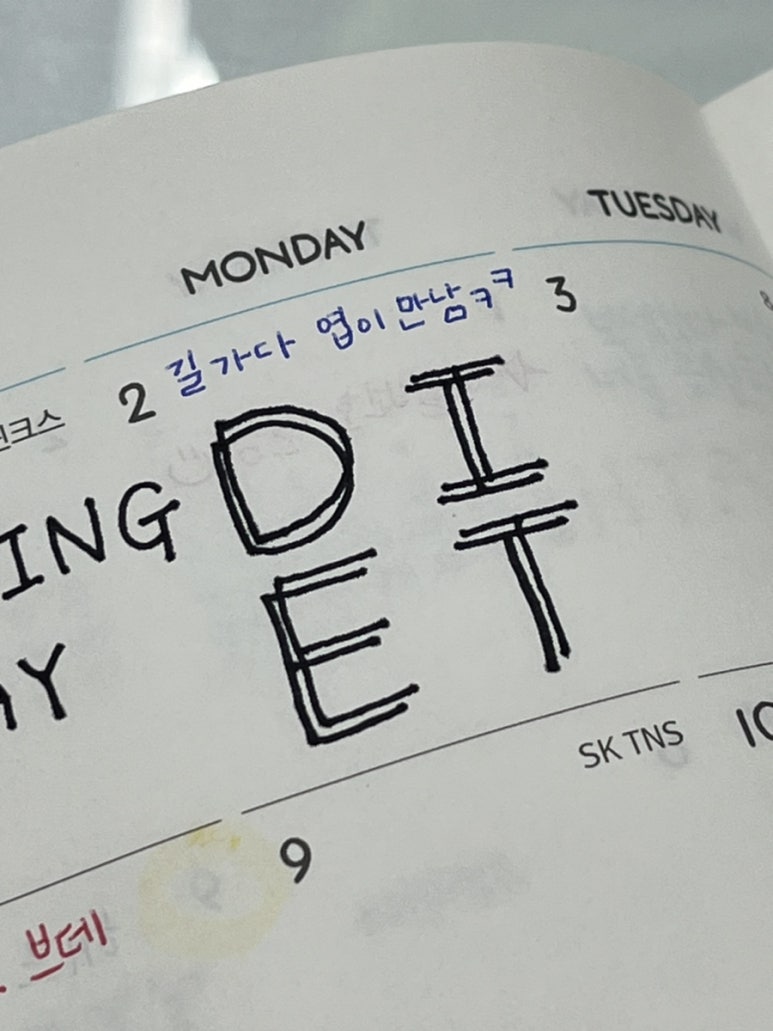 MONDAY
TUESDAY
2 길가다 엽이 만남ㅋㅋ
3
크스
DI
ING
ET
Y
SK TNS
10
9
브데